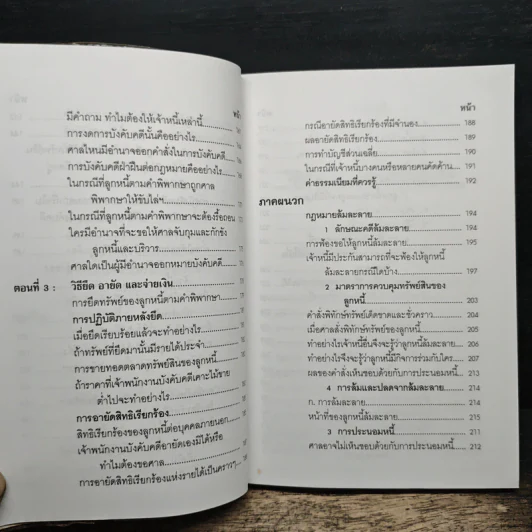 หน้า
มีคำถาม ทำไมต้องให้เจ้าหนี้เหล่านี้
การงดการบังคับคดีนั้นคืออย่างไร
ศาลไหนมีอำนาจออกคำสั่งในการบังคับคดี
การบังคับคดีฝ่าฝืนต่อกฎหมายคืออย่างไร
ในกรณีที่ลูกหนี้ตามคำพิพากษาถูกศาล
พิพากษาให้ขับไล่ฯ
ในกรณีที่ลูกหนี้ตามคำพิพากษาจะต้องรื้อถอน
ใครมีอำนาจที่จะขอให้ศาลจับกุมและกักขัง
ลูกหนี้และบริวาร
ศาลใดเป็นผู้มีอำนาจออกหมายบังคับคดี
ตอนที่ 3 : วิธียึด อายัด และจ่ายเงิน
การยึดทรัพย์ของลูกหนี้ตามคำพิพากษา
การปฏิบัติภายหลังยึด
เมื่อยึดเรียบร้อยแล้วจะทำอย่างไร
ถ้าทรัพย์ที่ยึดมานั้นมีรายได้ประจำ
การขายทอดตลาดทรัพย์สินของลูกหนี้
ถ้าราคาที่เจ้าพนักงานบังคับคดีเคาะไม้ขาย
ต่ำไปจะทำอย่างไร
การอายัดสิทธิเรียกร้อง
สิทธิเรียกร้องของลูกหนี้ต่อบุคคลภายนอก
เจ้าพนักงานบังคับคดีอายัดเองมีได้หรือ
ทำไมต้องขอศาล
การอายัดสิทธิเรียกร้องแห่งรายได้เป็นคราวๆ
หน้า
กรณีอายัดสิทธิเรียกร้องที่มีจำนอง 188
ผลอายัดสิทธิเรียกร้อง 189
การทำบัญชีส่วนเฉลี่ย 190
ในกรณีที่เจ้าหนี้บางคนหรือหลายคนคัดค้าน 191
ค่าธรรมเนียมที่ควรรู้ 192
ภาคผนวก
กฎหมายล้มละลาย 194
1 ลักษณะคดีล้มละลาย 194
การฟ้องขอให้ลูกหนี้ล้มละลาย 195
เจ้าหนี้มีประกันสามารถที่จะฟ้องให้ลูกหนี้
ล้มละลายกรณีใดบ้าง 197
2 มาตราการควบคุมทรัพย์สินของ
ลูกหนี้ 203
คำสั่งพิทักษ์ทรัพย์เด็ดขาดและชั่วคราว 203
เมื่อศาลสั่งพิทักษ์ทรัพย์ของลูกหนี้ 205
ทำอย่างไรเจ้าหนี้อื่นจึงจะรู้ว่าลูกหนี้ล้มละลาย 206
ทำอย่างไรจึงจะรู้ว่าลูกหนี้มีกิจการร่วมกับใคร 207
ผลของคำสั่งเห็นชอบด้วยกับการประนอมหนี้ 213
4 การล้มและปลดจากล้มละลาย 214
ก. การล้มละลาย 214
หน้าที่ของลูกหนี้ล้มละลาย 215
3 การประนอมหนี้ 211
ศาลอาจไม่เห็นชอบด้วยกับการประนอมหนี้ 212